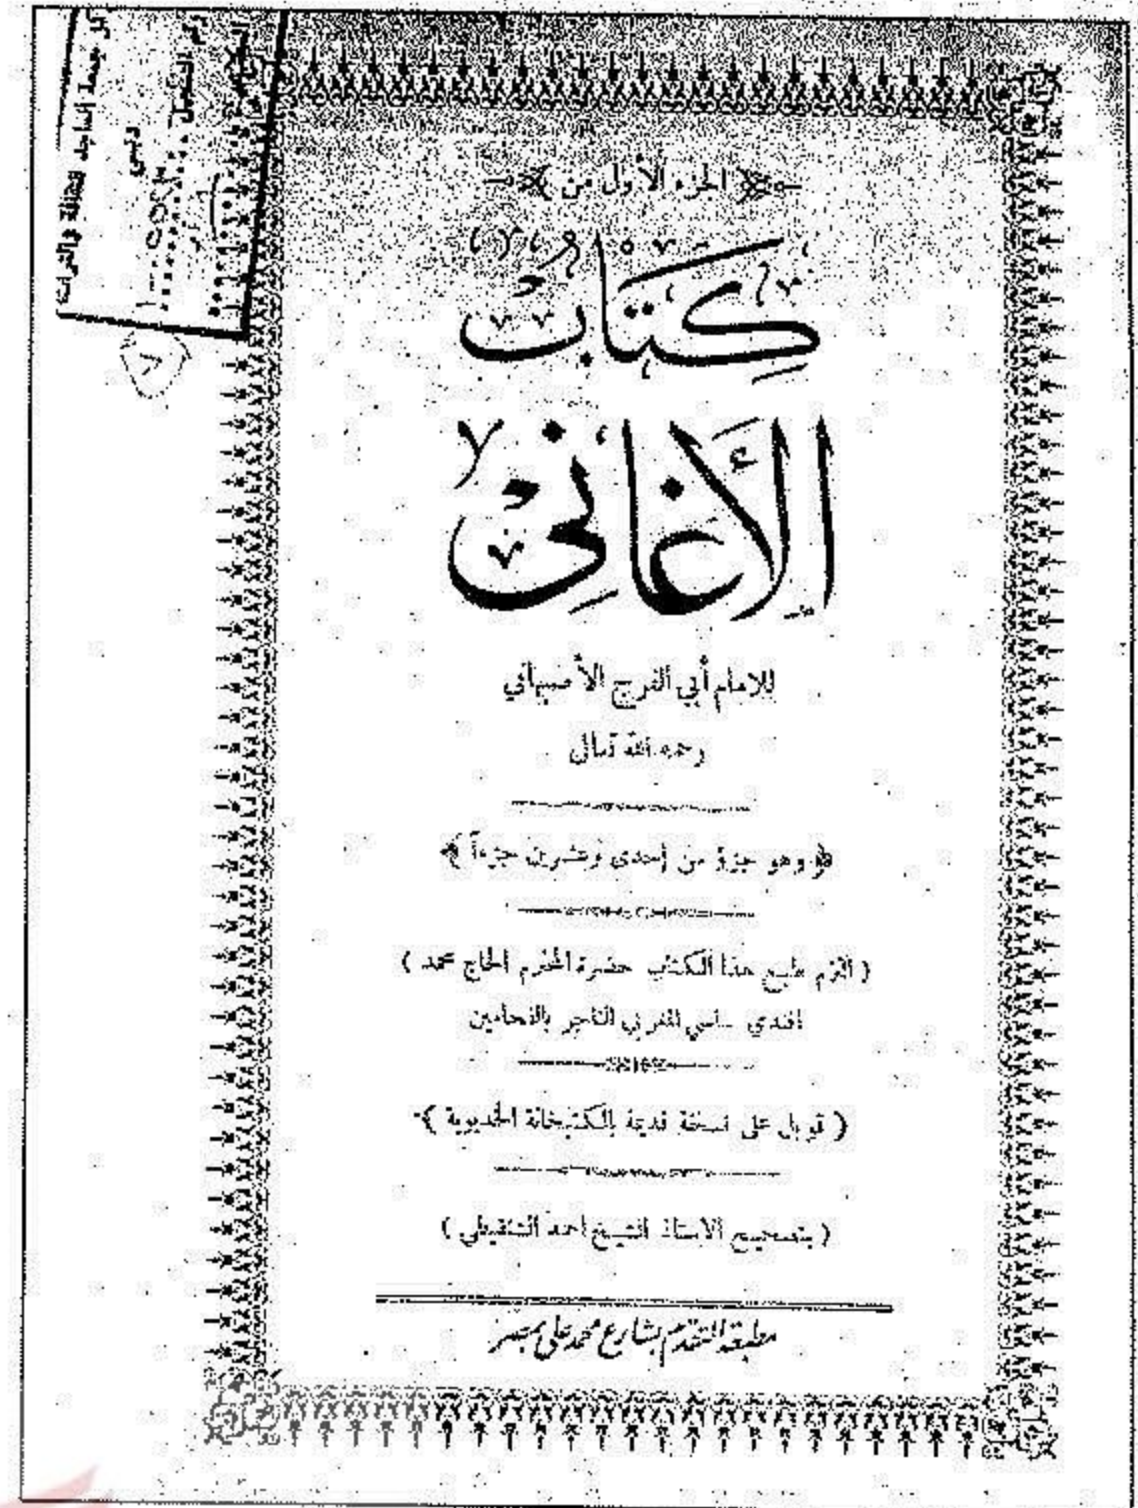 مركز جمعة الماجد للثقافة والتراث
دبي
الجزء الأول من
كِتَابُ
الأَغَانِي
للامام أبي الفرج الأصبهاني
رحمه الله تعالى
﴿ وهو جزؤ من إحدى وعشرين جزءاً ﴾
( التزم طبع هذا الكتاب حضرة المحترم الحاج محمد )
افندي ساسي المغربي التاجر بالفحامين
( قوبل على نسخة قديمة بالكتبخانة الخديوية )
( بتصحيح الاستاذ الشيخ احمد الشنقيطي )
مطبعة التقدم بشارع محمد علي بمصر